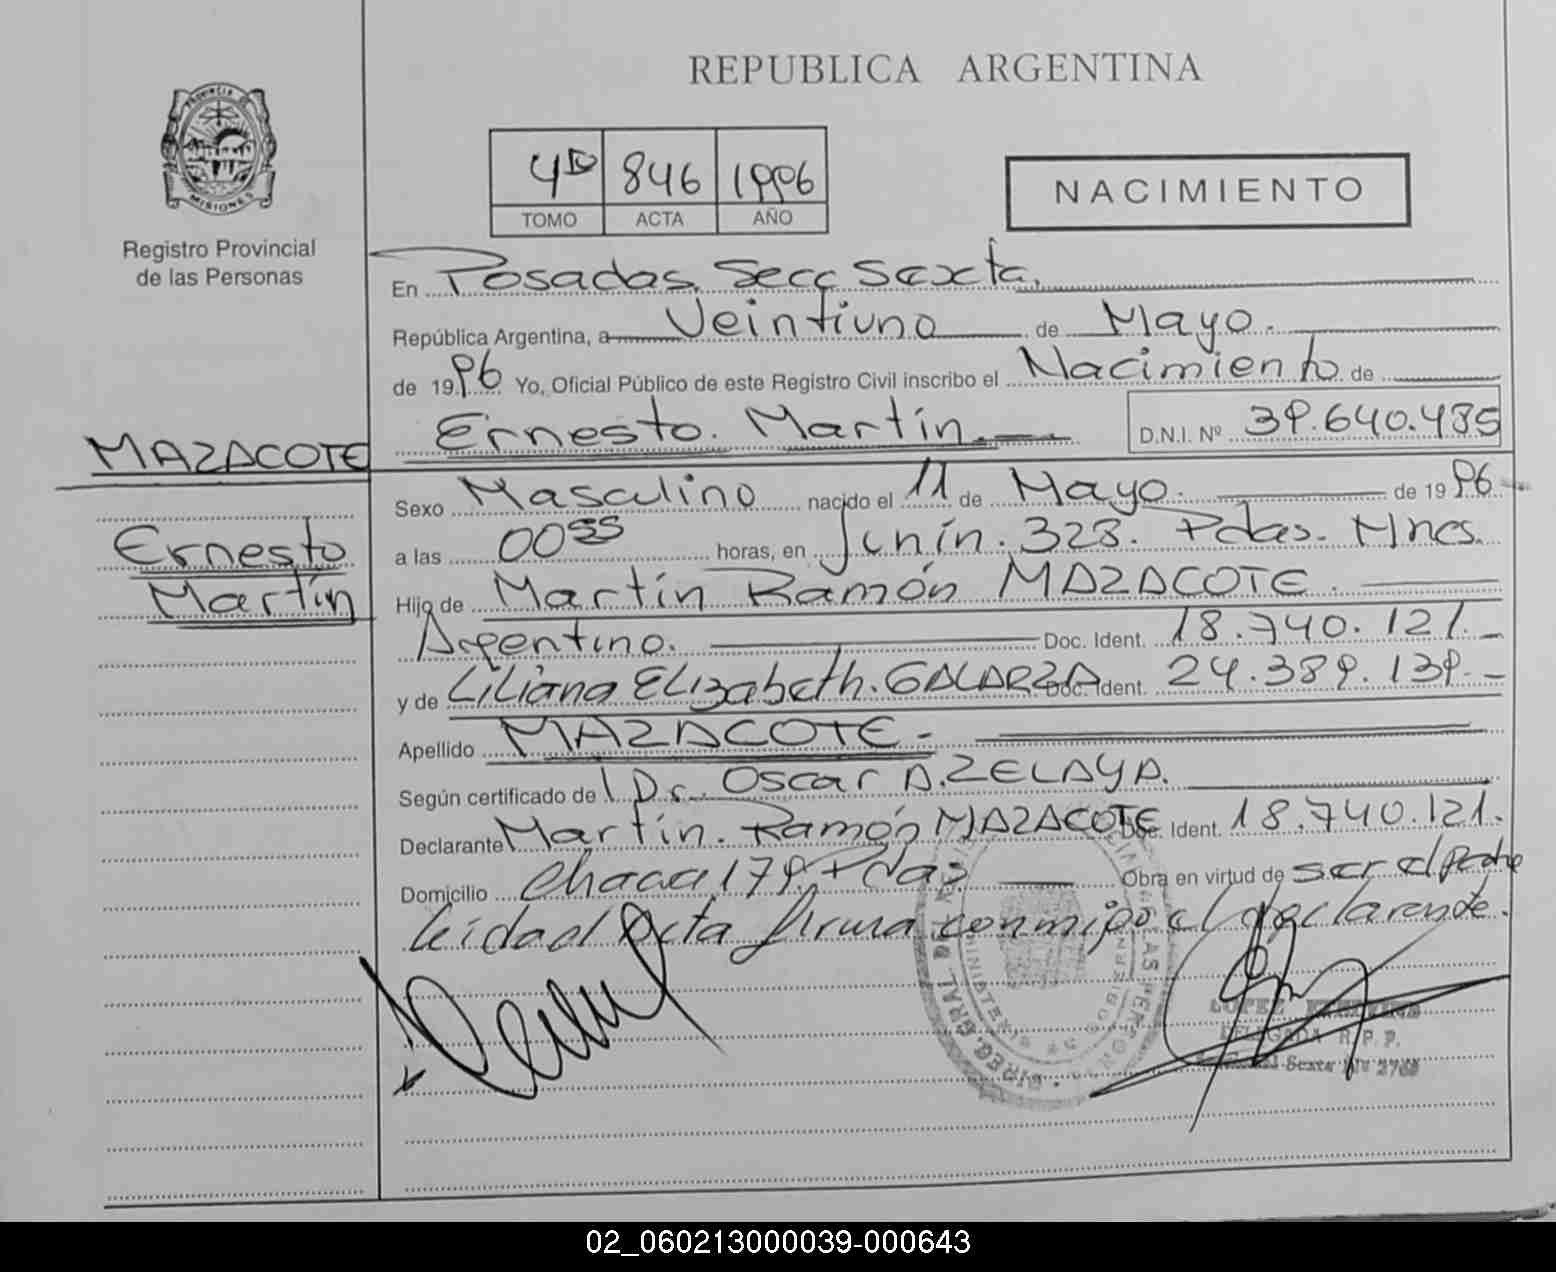 REPUBLICA ARGENTINA
PROVINCIA DE
MISIONES
Registro Provincial
de las Personas
846 1996
TOMO ACTA AÑO
NACIMIENTO
En Posadas. Secc Sexta.
República Argentina, a Veintiuno de Mayo.
de 1996 Yo, Oficial Público de este Registro Civil inscribo el Nacimiento de
Ernesto. Martín. D.N.I. Nº 39.640.485
MAZACOTE
Ernesto
Martín
Sexo Masculino nacido el 11 de Mayo. de 1996
a las 00 55 horas, en Junín. 328. Pdas. Mnes.
Hijo de Martín Ramón MAZACOTE.
Argentino. Doc. Ident. 18.740.121.
y de Liliana Elizabeth. GALARZA Doc. Ident. 24.389.139.
Apellido MAZACOTE.
Según certificado del Dr. Oscar A. ZELAYA.
Declarante Martín. Ramón MAZACOTE Doc. Ident. 18.740.121.
Domicilio 179. Pdas Obra en virtud de ser el Padre
leida el Acta firma conmigo el declarante.
LOPEZ
DELEGADA R. P. P.
Sexta
02_060213000039-000643